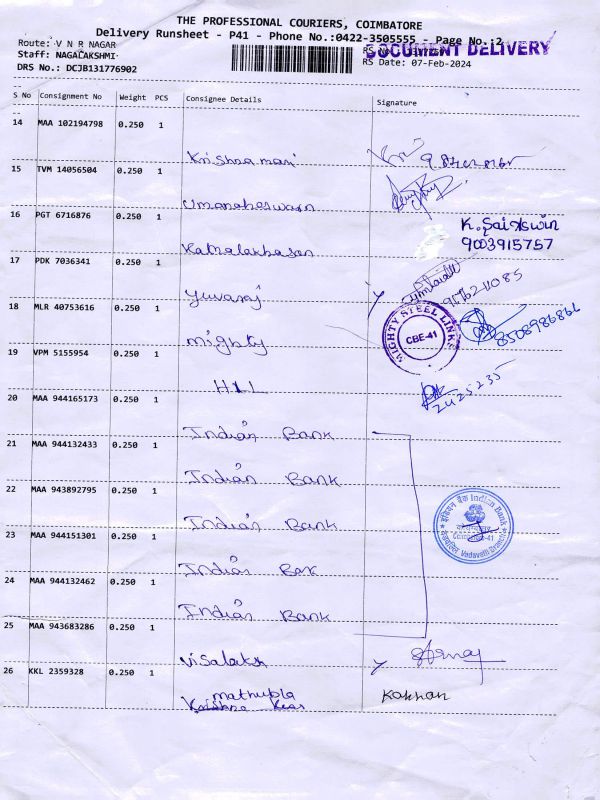 THE PROFESSIONAL COURIERS, COIMBATORE
Delivery Runsheet - P41 - Phone No.:0422-3505555 - Page No.:2
Route: V N R NAGAR
Staff: NAGALAKSHMI
DRS No.: DCJB131776902
DOCUMENT DELIVERY
RS Date: 07-Feb-2024
S No Consignment No Weight PCS Consignee Details Signature
--
14 MAA 102194798 0.250 1
Krishnamani
15 TVM 14056504 0.250 1
Umamaheswarn
16 PGT 6716876 0.250 1
K. Saiaswin
9003915757
Kamalakhasan
17 PDK 7036341 0.250 1
Yuvaraj
18 MLR 40753616 0.250 1
MIGHTY STEEL LINKS
CBE-41
8508986866
mighty
19 VPM 5155954 0.250 1
HLL
2425235
20 MAA 944165173 0.250 1
Indian Bank
21 MAA 944132433 0.250 1
Indian Bank
22 MAA 943892795 0.250 1
Indian Bank
इंडियन बैंक Indian Bank
Vadavalli Branch
23 MAA 944151301 0.250 1
Indian Bak
24 MAA 944132462 0.250 1
Indian Bank
25 MAA 943683286 0.250 1
Visalaksh
26 KKL 2359328 0.250 1
mathupla
Krishna
Kannan